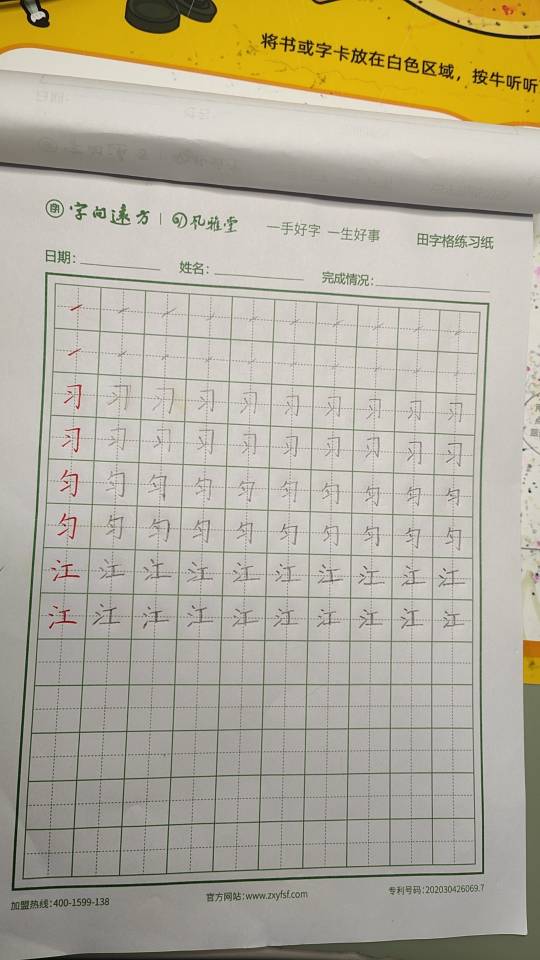 将书或字卡放在白色区域，按牛听听
字向远方 风雅堂 一手好字 一生好事 田字格练习纸
日期： 姓名： 完成情况：
习 习 习 习 习 习 习 习 习 习
习 习 习 习 习 习 习 习 习 习
匀 匀 匀 匀 匀 匀 匀 匀 匀 匀
匀 匀 匀 匀 匀 匀 匀 匀 匀 匀
江 江 江 江 江 江 江 江 江 江
江 江 江 江 江 江 江 江 江 江
加盟热线：400-1599-138 官方网站：www.zxyfsf.com 专利号码：202030426069.7